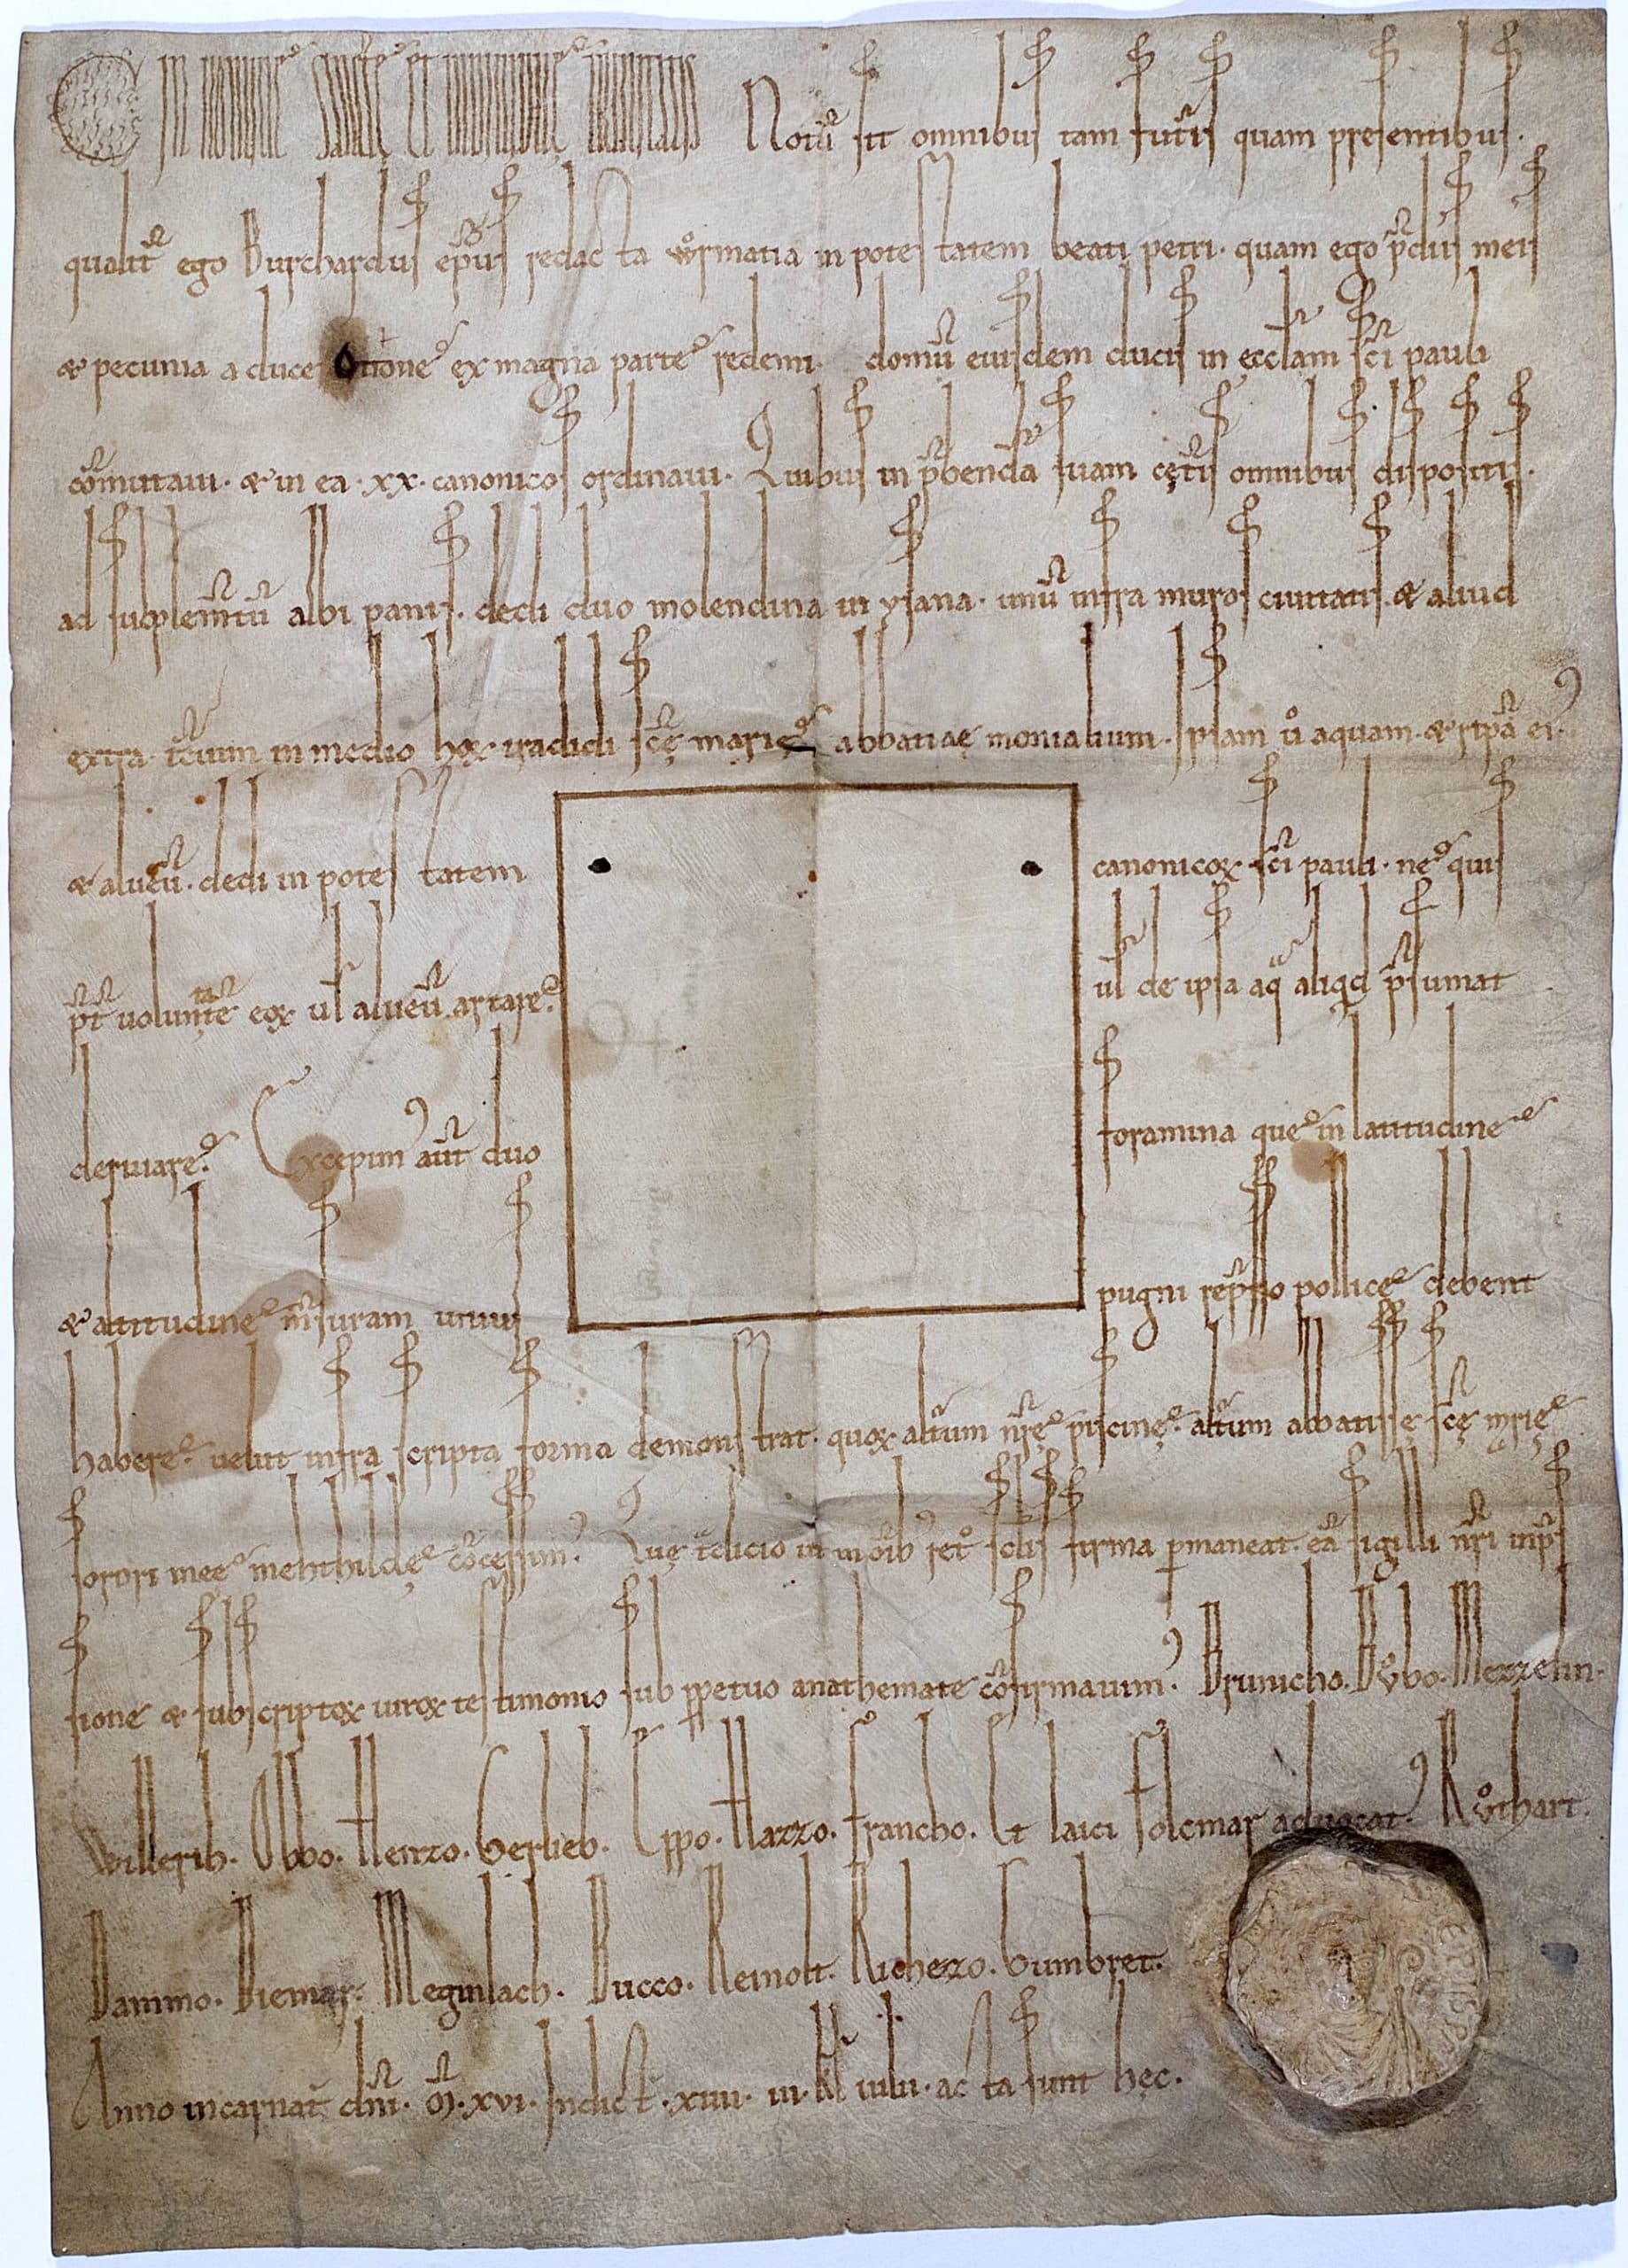 In nomine sanctę et individuę trinitatis Notū sit omnibus tam futuris quam presentibus.
qualit̄ ego Burchardus ep̄us redacta wormatia in potestatem beati petri. quam ego p̄diis meis
& pecunia a duce Ottone ex magna parte redemi. domū eiusdem ducis in ęcclam sc̄i pauli
cōmutavi. & in ea .xx. canonicos ordinavi. Quibus in p̄bendā suam cęt̄is omnibus dispositis.
ad suplem̄tū albi panis. dedi duo molendina in ysana. unū infra muros civitatis. & aliud
extra. t̄cium in medio hoꝝ. tradidi sc̄ę marię abbatiae monialium. Ipsam ů aquam. & ripā ei᾽.
& alveū. dedi in potestatem canonicoꝝ sc̄i pauli. ne quis
p̄t volunt̄ate eoꝝ ul̄ alveū artare. ul̄ de ipsa aqͣ aliqͥd p̄sumat
derivare. Excepim᾽ aūt duo foramina que in latitudine
& altitudine m̄suram unius pugni rep̄sso pollice debent
habere. velut infra scripta forma demonstrat. quoꝝ alt̄um nr̄ę piscinę. alt̄um abbatissę sc̄ę marię
sorori meę mehthildę cōcessim᾽. Quę t̄dicio ut in om̄ib᾽ ret᾽ sclis firma ꝑmaneat. eā sigilli nr̄i inp̄s
sione & subscriptoꝝ viroꝝ testimonio sub ꝑpetuo anathemate cōfirmavim᾽. Brunicho. Bůbo. Mezzelin.
Willerih. Obbo. Heizzo. Gerlieb. Eppo. Hazzo. Francho. Et laici Folcmar advocat᾽. Růthart.
Dammo. Diemar. Meginlach. Bucco. Reinolt. Richezzo. Gumbret.
Anno incarnat̄ dn̄i. M̄. xvi. Indict̄. xiiii. iii. kl̄ iulii. acta sunt hęc.